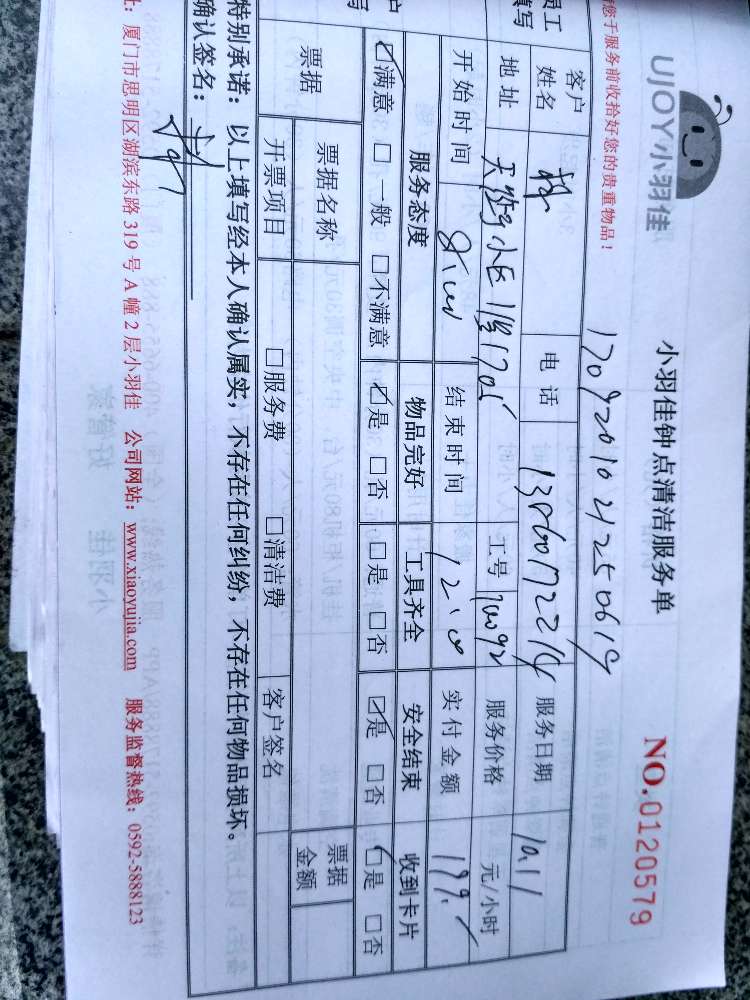 UJOY小羽佳
小羽佳钟点清洁服务单
NO.0120579
您于服务前收拾好您的贵重物品！
客户姓名 林 电话 服务日期 10.11
地址 工号 服务价格 元/小时
开始时间 结束时间 12:00 实付金额
服务态度 物品完好 工具齐全 安全结束 收到卡片
☑满意 □一般 □不满意 ☑是 □否 □是 □否 ☑是 □否 □是 □否
票据 票据名称 票据金额
开票项目 □服务费 □清洁费 客户签名
特别承诺：以上填写经本人确认属实，不存在任何纠纷，不存在任何物品损坏。
确认签名：
址：厦门市思明区湖滨东路 319 号 A 幢 2 层小羽佳 公司网站：www.xiaoyujia.com 服务监督热线：0592-5888123